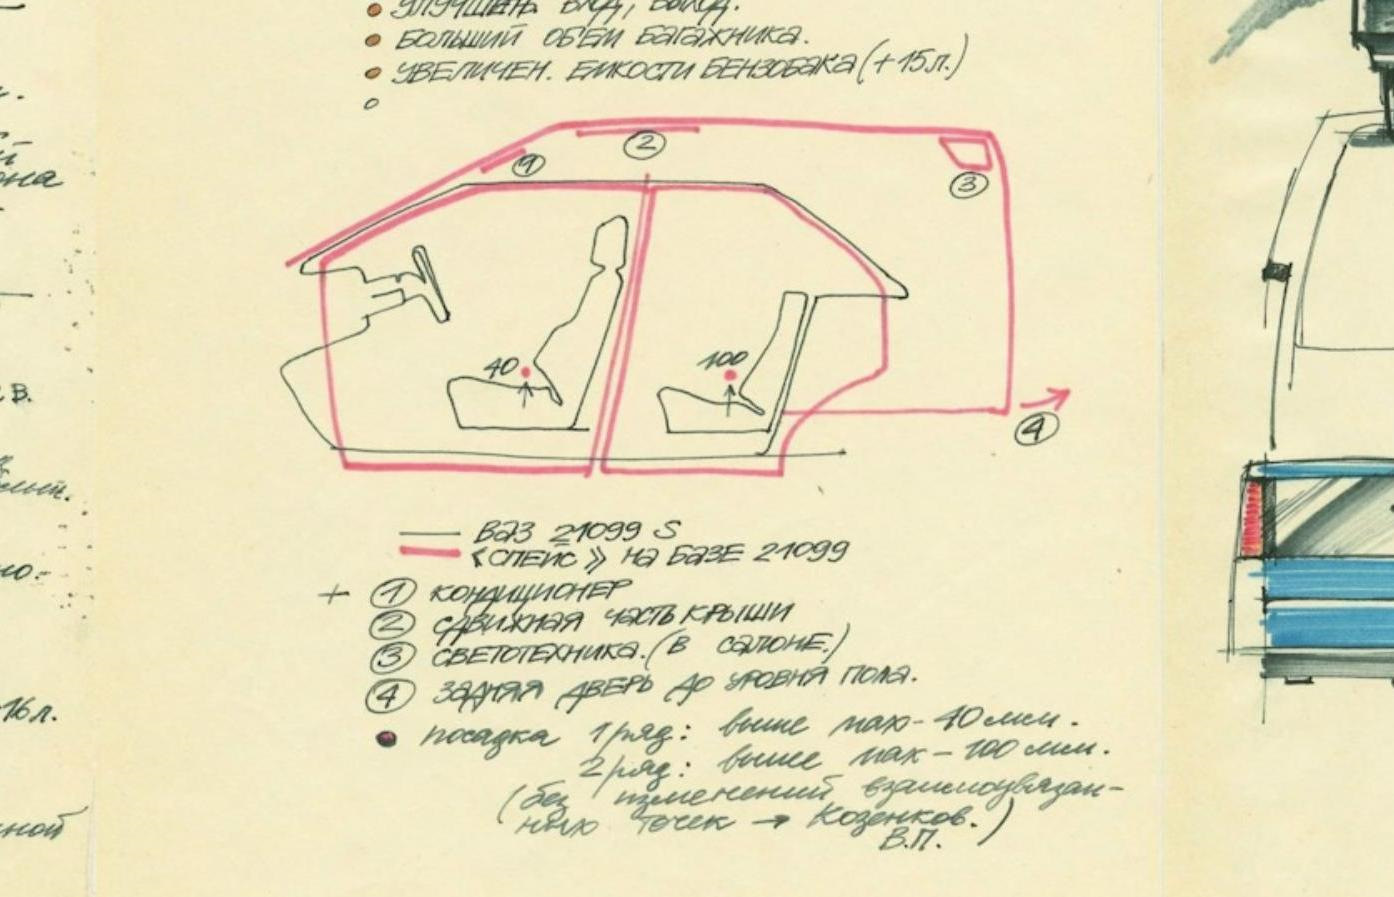 УЛУЧШЕН ВХОД, ВЫХОД.
БОЛЬШИЙ ОБ'ЕМ БАГАЖНИКА.
УВЕЛИЧЕН. ЕМКОСТИ БЕНЗОБАКА (+15Л.)
1
2
3
40
100
4
ВАЗ 21099 S
«СПЕЙС» НА БАЗЕ 21099
+ 1 КОНДИЦИОНЕР
2 СДВИЖНАЯ ЧАСТЬ КРЫШИ
3 СВЕТОТЕХНИКА. (В САЛОНЕ.)
4 ЗАДНЯЯ ДВЕРЬ ДО УРОВНЯ ПОЛА.
ПОСАДКА 1 ряд: выше max - 40 мм.
2 ряд: выше max - 100 мм.
(без изменений взаимоувязан-
ных точек → Козенков.)
В.П.
в.
-16л.
ной